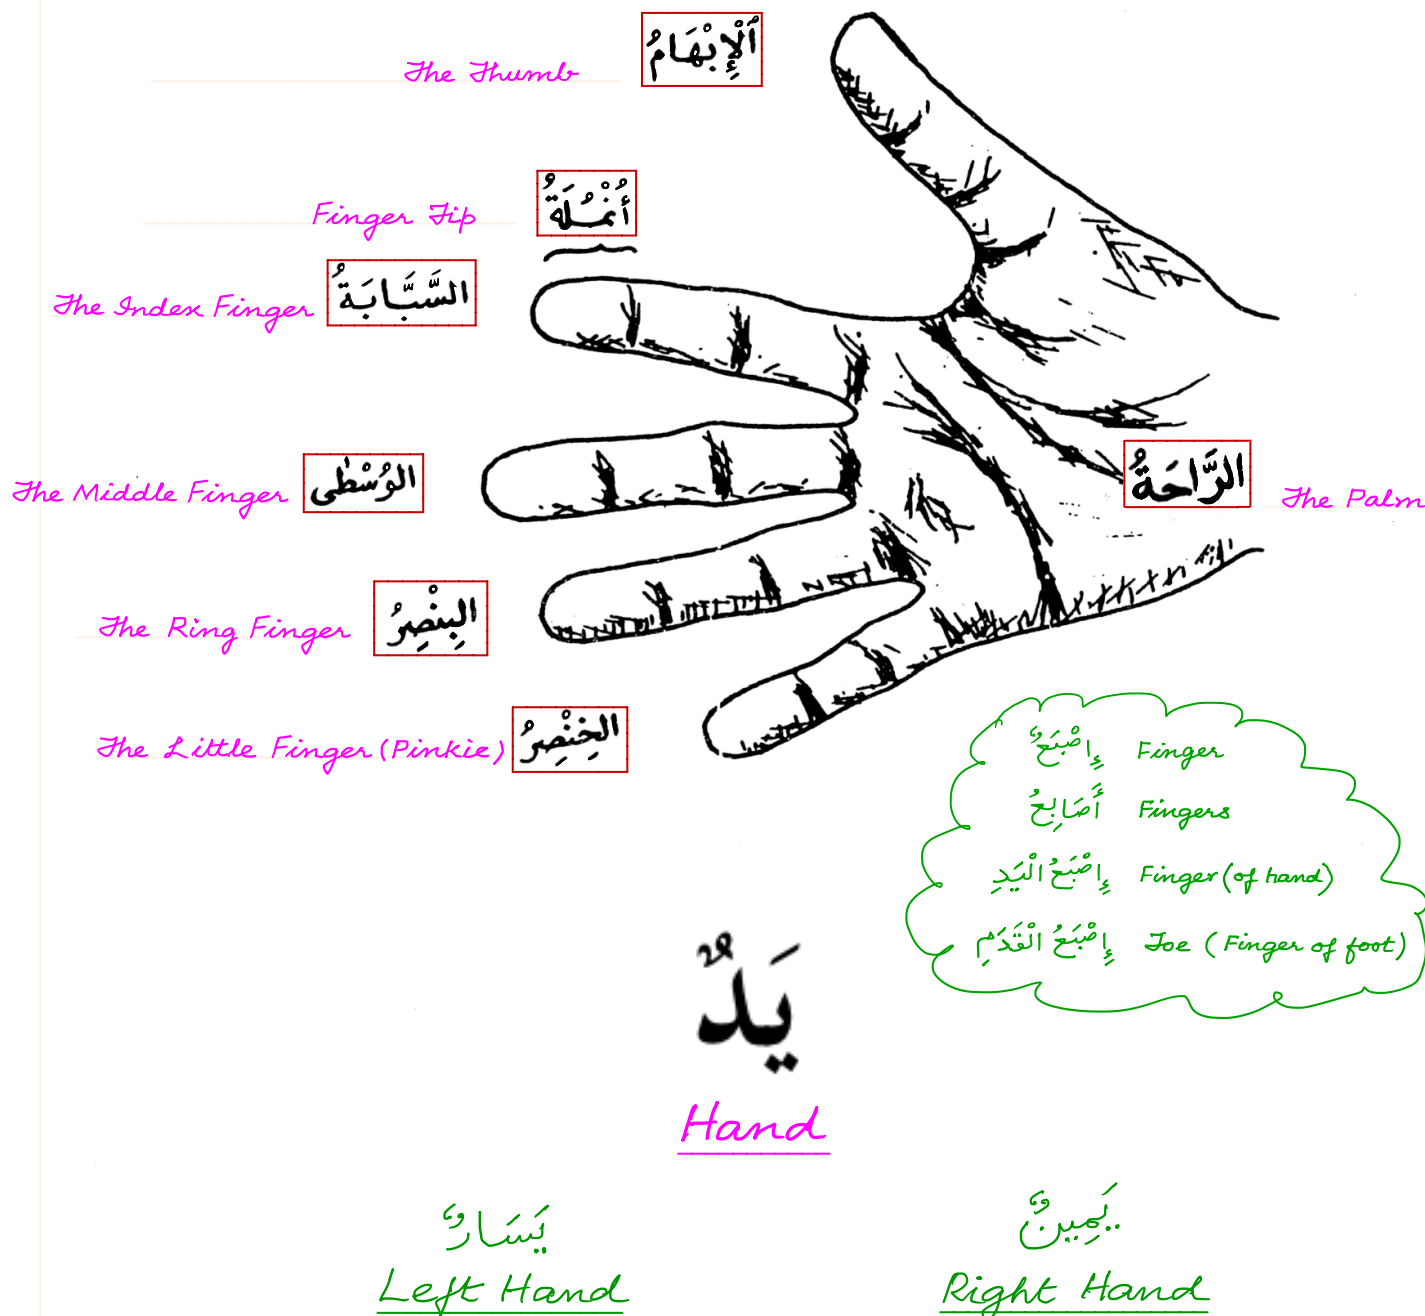 The Thumb اَلْإِبْهَامُ
Finger Tip أُنْمُلَةٌ
The Index Finger السَّبَّابَةُ
The Middle Finger الوُسْطٰى
الرَّاحَةُ The Palm
The Ring Finger البِنْصِرُ
The Little Finger (Pinkie) الخِنْصِرُ
إِصْبَعٌ Finger
أَصَابِعُ Fingers
إِصْبَعُ الْيَدِ Finger (of hand)
إِصْبَعُ الْقَدَمِ Toe (Finger of foot)
يَدٌ
Hand
يَسَارٌ يَمِينٌ
Left Hand Right Hand